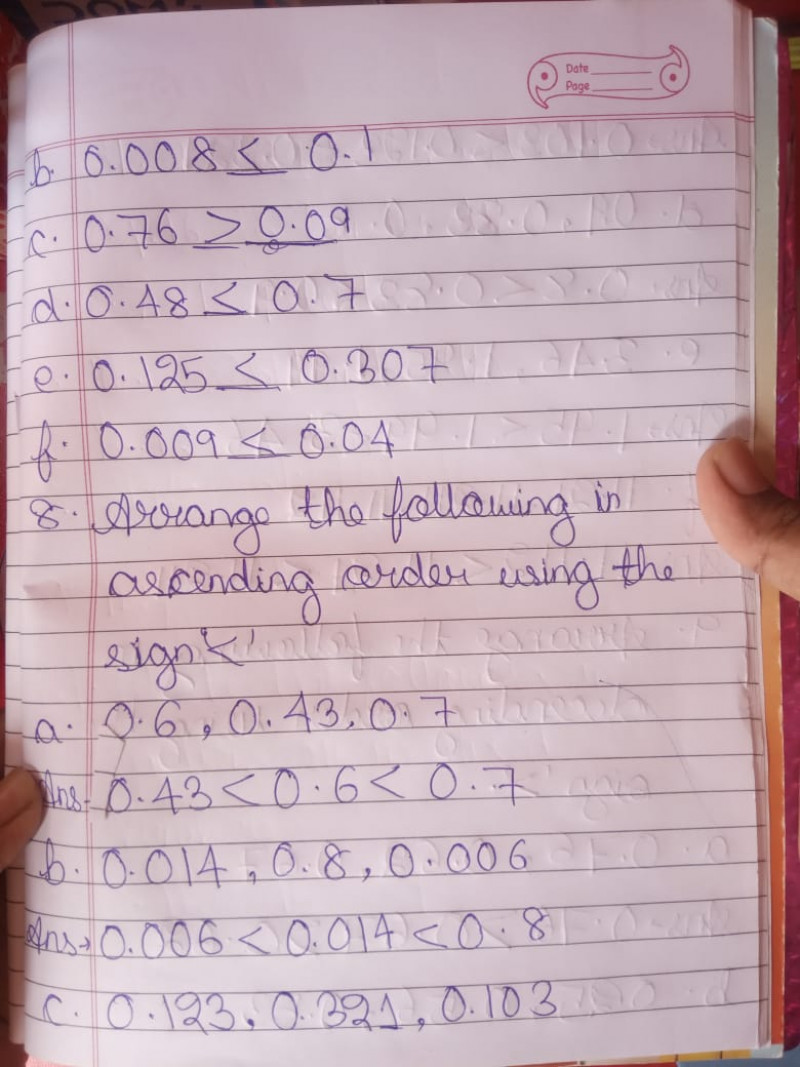 Date
Page
b. 0.008 < 0.1
c. 0.76 > 0.09
d. 0.48 < 0.7
e. 0.125 < 0.307
f. 0.009 < 0.04
8. Arrange the following in
ascending order using the
sign '<'
a. 0.6, 0.43, 0.7
Ans- 0.43 < 0.6 < 0.7
b. 0.014, 0.8, 0.006
Ans→ 0.006 < 0.014 < 0.8
c. 0.123, 0.321, 0.103